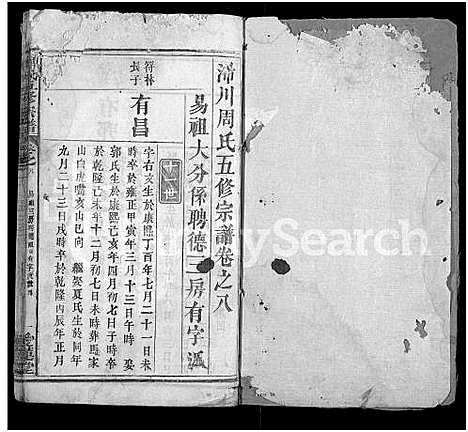 沛川周氏五修宗譜卷之八
易祖大分係聘德三房有字派
十一世
符林
長子
有昌
字右文生於康熙丁酉年七月二十一日未
時卒於雍正甲寅年三月十三日午時 娶
郭氏生於康熙己亥年四月初七日子時卒
於乾隆己未年十二月初七日未時葬馬家
山白虎嘴亥山巳向 繼娶夏氏生於同年
九月二十三日戌時卒於乾隆丙辰年正月
FamilySearch